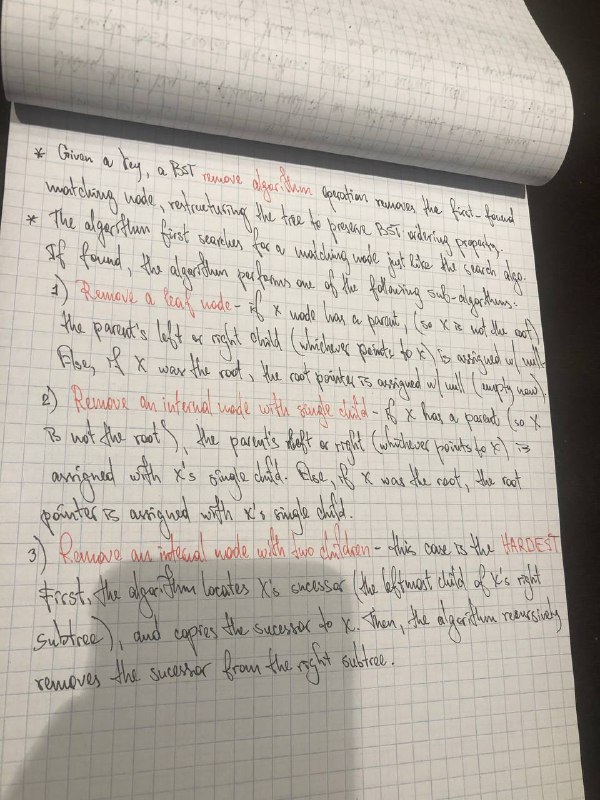 * Given a key, a BST remove algorithm operation removes the first-found
matching node, restructuring the tree to preserve BST ordering property.
* The algorithm first searches for a matching node just like the search algo.
If found, the algorithm performs one of the following sub-algorithms:
1) Remove a leaf node - if X node has a parent, (so X is not the root),
the parent's left or right child (whichever points to X) is assigned w/ null.
Else, if X was the root, the root pointer is assigned w/ null (empty now).
2) Remove an internal node with single child - if X has a parent (so X
is not the root), the parent's left or right (whichever points to X) is
assigned with X's single child. Else, if X was the root, the root
pointer is assigned with X's single child.
3) Remove an internal node with two children - this case is the HARDEST
First, the algorithm locates X's sucessor (the leftmost child of X's right
subtree), and copies the sucessor to X. Then, the algorithm recursively
removes the sucessor from the right subtree.